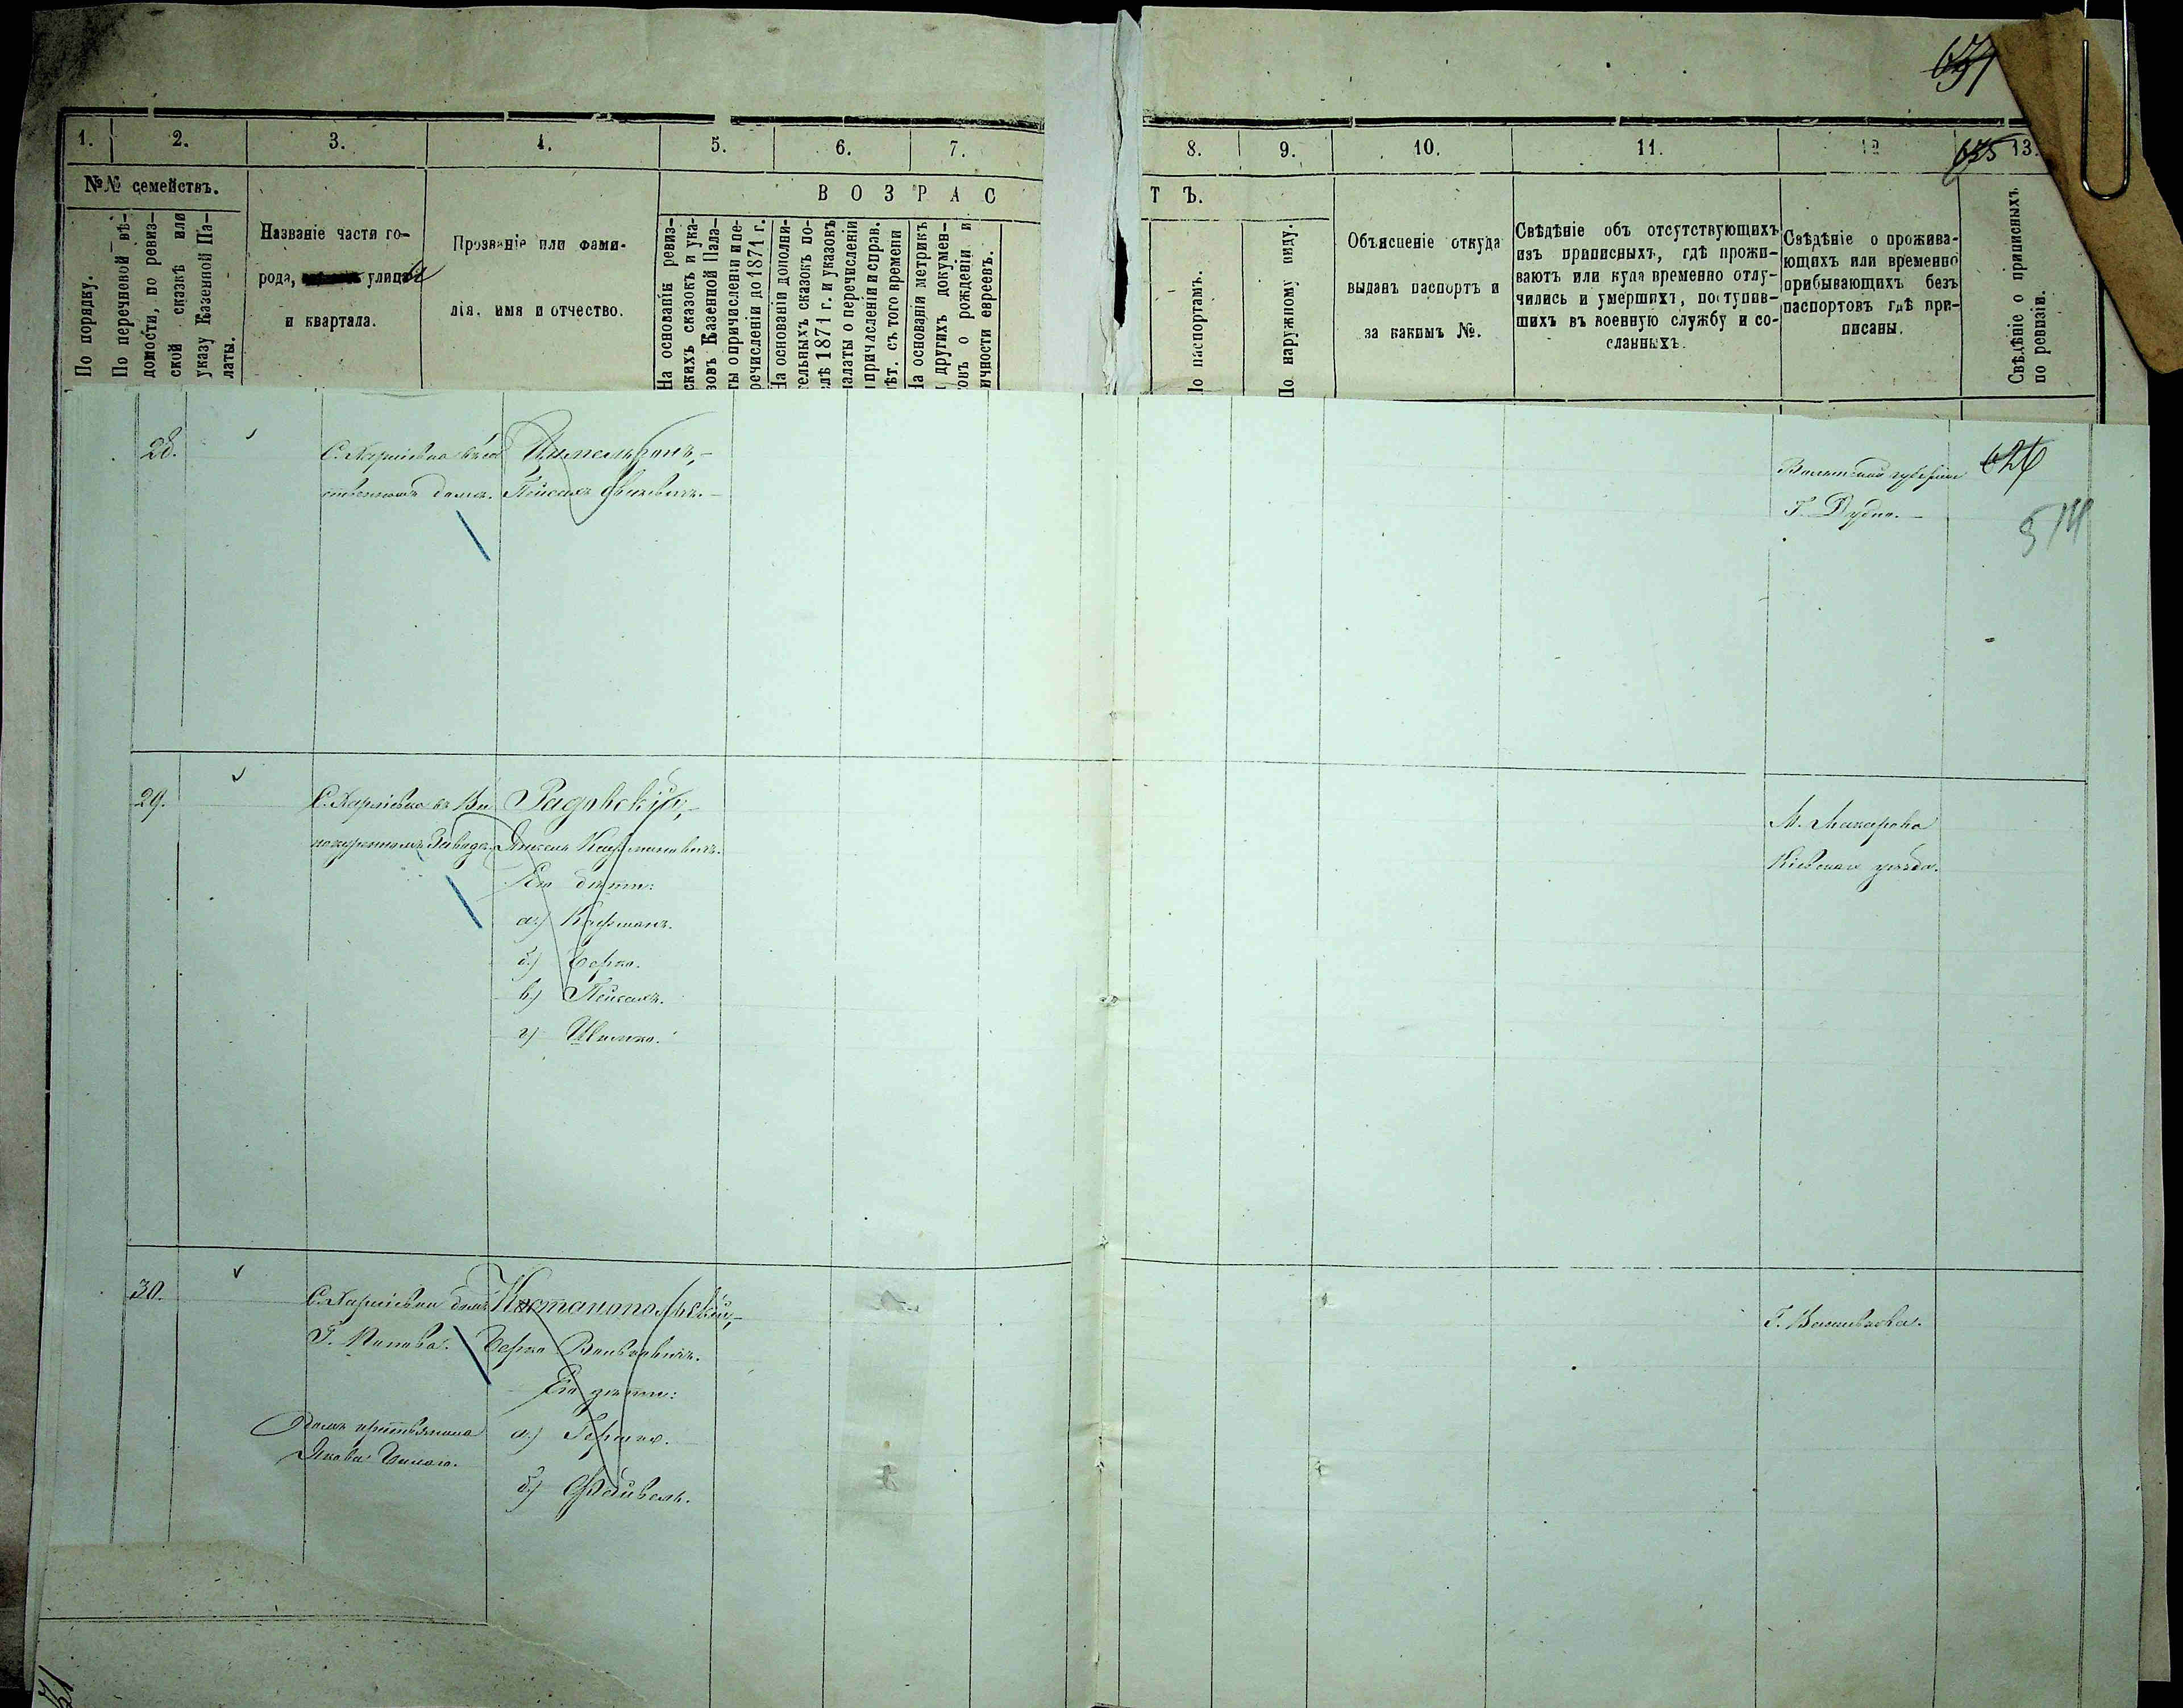 1.
2.
3.
4.
5.
6.
7.
8.
9.
10.
11.
12
13.
635
№№ семействъ.
По порядку.
По перечневой вѣ-
домости, по ревиз-
ской сказкѣ или
указу Казенной Па-
латы.
Названіе части го-
рода, улицы
и квартала.
Прозваніе или фами-
лія, имя и отчество.
ВОЗРАС
ТЪ.
На основаніи ревиз-
скихъ сказокъ и ука-
зовъ Казенной Пала-
ты о причисленіи и пе-
речисленіи до 1871 г.
На основаніи дополни-
тельныхъ сказокъ по-
слѣ 1871 г. и указовъ
палаты о перечисленіи
и причисленіи и справ.
лѣт. съ того времени
На основаніи метрикъ
и другихъ докумен-
товъ о рожденіи и
личности евреевъ.
По паспортамъ.
По наружному виду.
Объясненіе откуда
выданъ паспортъ и
за какимъ №.
Свѣдѣніе объ отсутствующихъ
изъ приписныхъ, гдѣ прожи-
ваютъ или куда временно отлу-
чились и умершихъ, поступив-
шихъ въ военную службу и со-
сланныхъ.
Свѣдѣніе о прожива-
ющихъ или временно
прибывающихъ безъ
паспортовъ гдѣ при-
писаны.
Свѣдѣніе о приписныхъ
по ревизіи.
28.
ственномъ домѣ.
Пейсахъ
Волынской губерніи
Г. Дубно.
626
514
29.
Радовскій,
нокуренномъ Заводѣ.
Янкель Кауфмановичъ.
Его дѣти:
а.) Кауфманъ.
б.) Берко.
в) Пейсахъ.
г) Шлемко.
М. Макарова
Кіевскаго уѣзда.
30.
Костанопольскій,
Г. Попова.
Берко Вольковичъ.
Его дѣти:
а.) Гершко.
б.) Фейвель.
Домъ крестьянина
Якова
Г. Василькова.